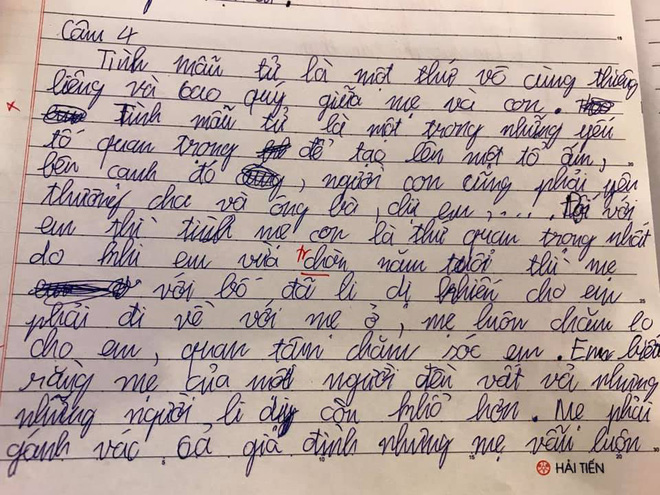 Câu 4
Tình mẫu tử là một thứ vô cùng thiêng
liêng và bao quý giữa mẹ và con.
Tình mẫu tử là một trong những yếu
tố quan trong để tạo lên một tổ ấm,
bên cạnh đó, người con cũng phải yêu
thương cha và ông bà, chị em, .... với
em thì tình mẹ con là thứ quan trọng nhất
do khi em vừa chòn năm tuổi thì mẹ
tr
với bố đã li dị khiến cho em
phải đi về với mẹ ở, mẹ luôn chăm lo
cho em, quan tâm chăm sóc em. Em biết
rằng mẹ của một người đều vất vả nhưng
những người li dị còn khổ hơn. Mẹ phải
gánh vác cả gia đình nhưng mẹ vẫn luôn
HẢI TIẾN